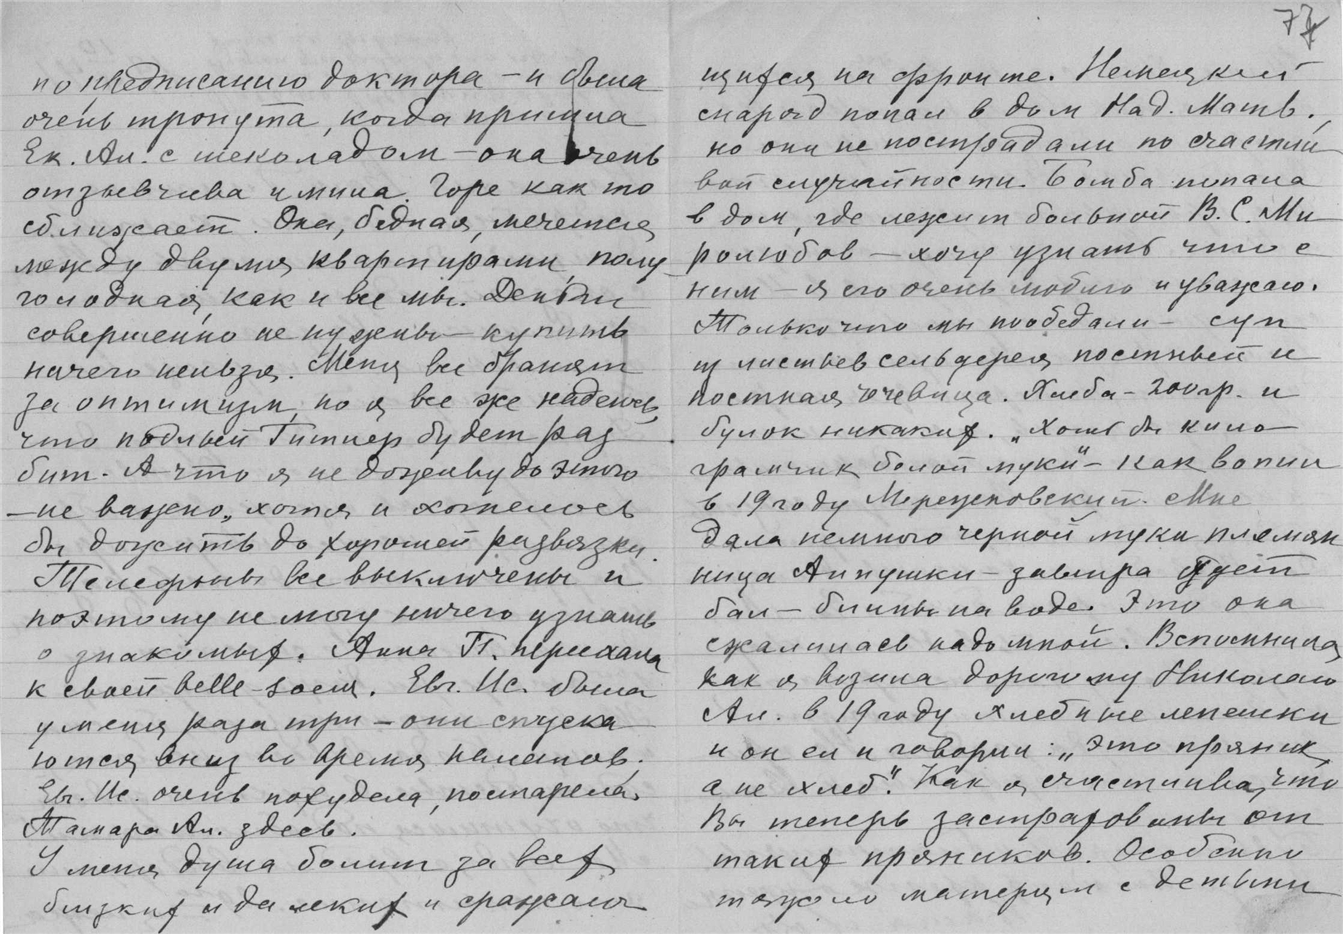 по предписанию доктора – и была
очень тронута, когда пришла
Ек. Ал. с шеколадом – она очень
отзывчива и мила. Горе как то
сближает. Она, бедная, мечется
между двумя квартирами, полу
голодная, как и все мы. Деньги
совершенно не нужны – купить
ничего нельзя. Меня все бранят
за оптимизм, но я все же надеюсь,
что подлый Гитлер будет раз
бит. А что я не доживу до этого
– не важно, хотя и хотелось
бы дожить до хорошей развязки.
Телефоны все выключены и
поэтому не могу ничего узнать
о знакомых. Анна П. переехала
к своей belle-soeur. Евг. Ис. была
у меня раза три – они спуска
ются вниз во время налетов.
Евг. Ис. очень похудела, постарела.
Тамара Ал. здесь.
У меня душа болит за всех
близких и далеких и сражаю
77
щихся на фронте. Немецкий
снаряд попал в дом Над. Матв.,
но они не пострадали по счастли
вой случайности. Бомба попала
в дом, где лежит больной В. С. Ми
ролюбов – хочу узнать что с
ним – я его очень люблю и уважаю.
Только что мы пообедали – суп
из листьев сельдерея постный и
постная чечевица. Хлеба – 200 гр. и
булок никаких. „Хоть бы кило
грамчик белой муки" – как вопил
в 19 году Мережковский. Мне
дала немного черной муки племян
ница Аннушки – завтра будет
бал – блины на воде. Это она
сжалилась надо мной. Вспомнила,
как я возила дорогому Николаю
Ал. в 19 году хлебные лепешки
и он ел и говорил: „это пряник,
а не хлеб". Как я счастлива, что
Вы теперь застрахованы от
таких пряников. Особенно
тяжело матерям с детьми